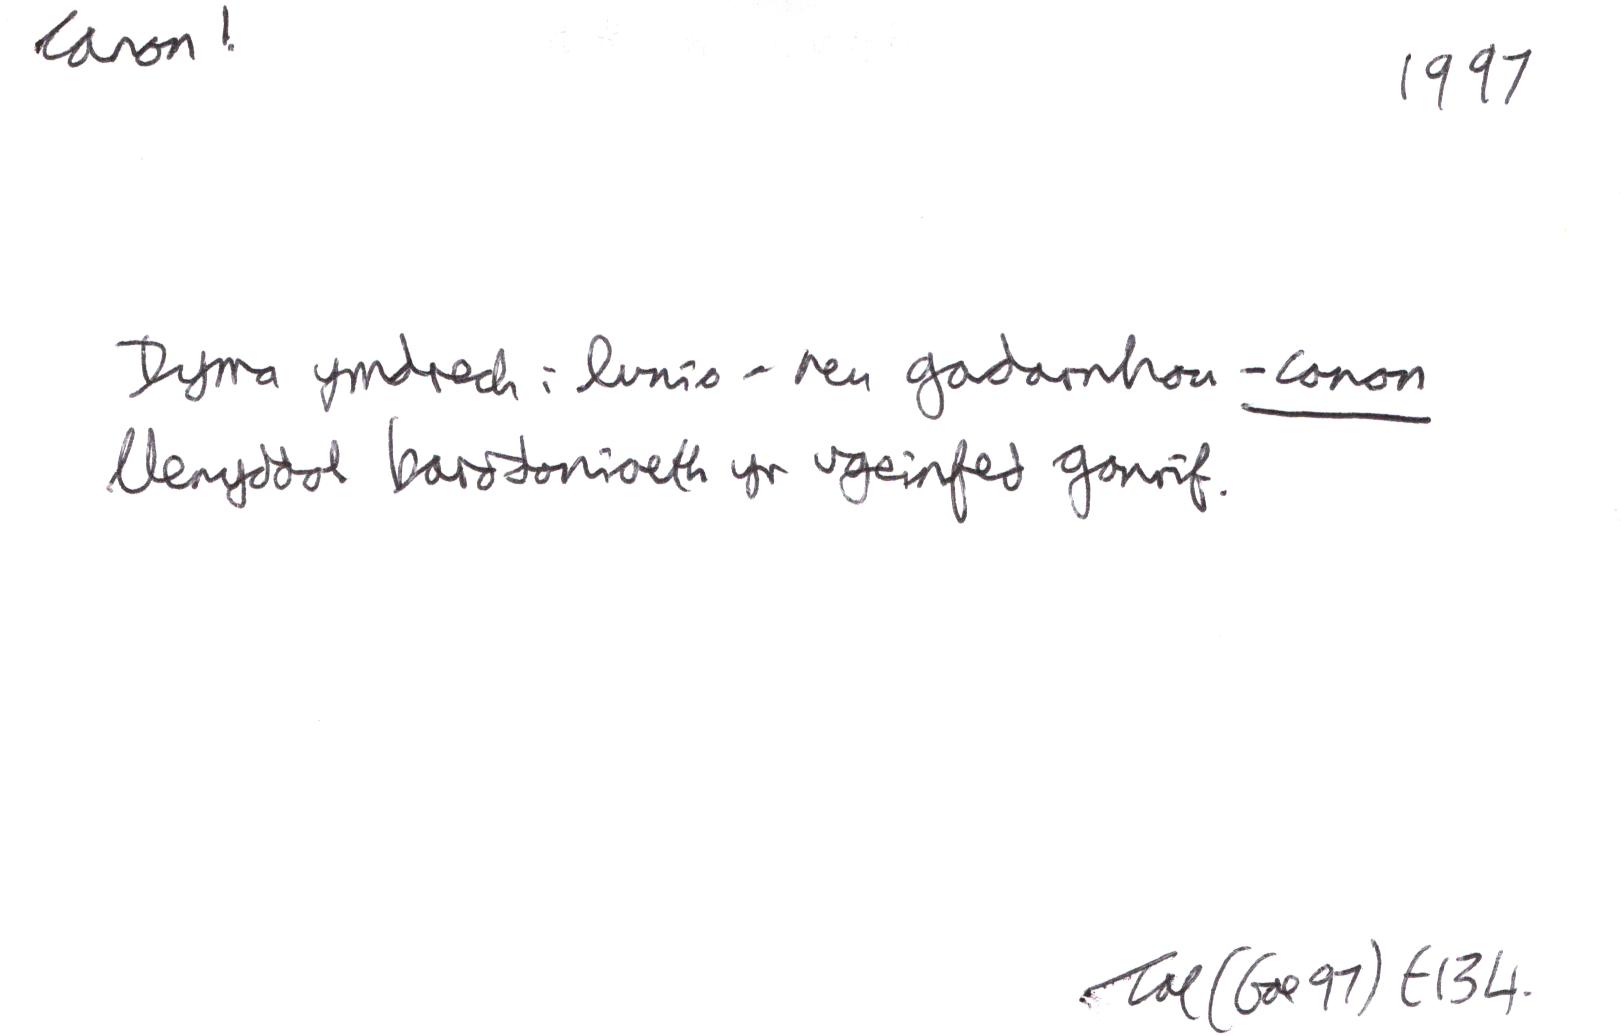 Canon!
1997
Dyma ymdrech i lunio - neu gadarnhau - canon
llenyddol barddoniaeth yr ugeinfed ganrif.
Tal (Gae 97) t134.